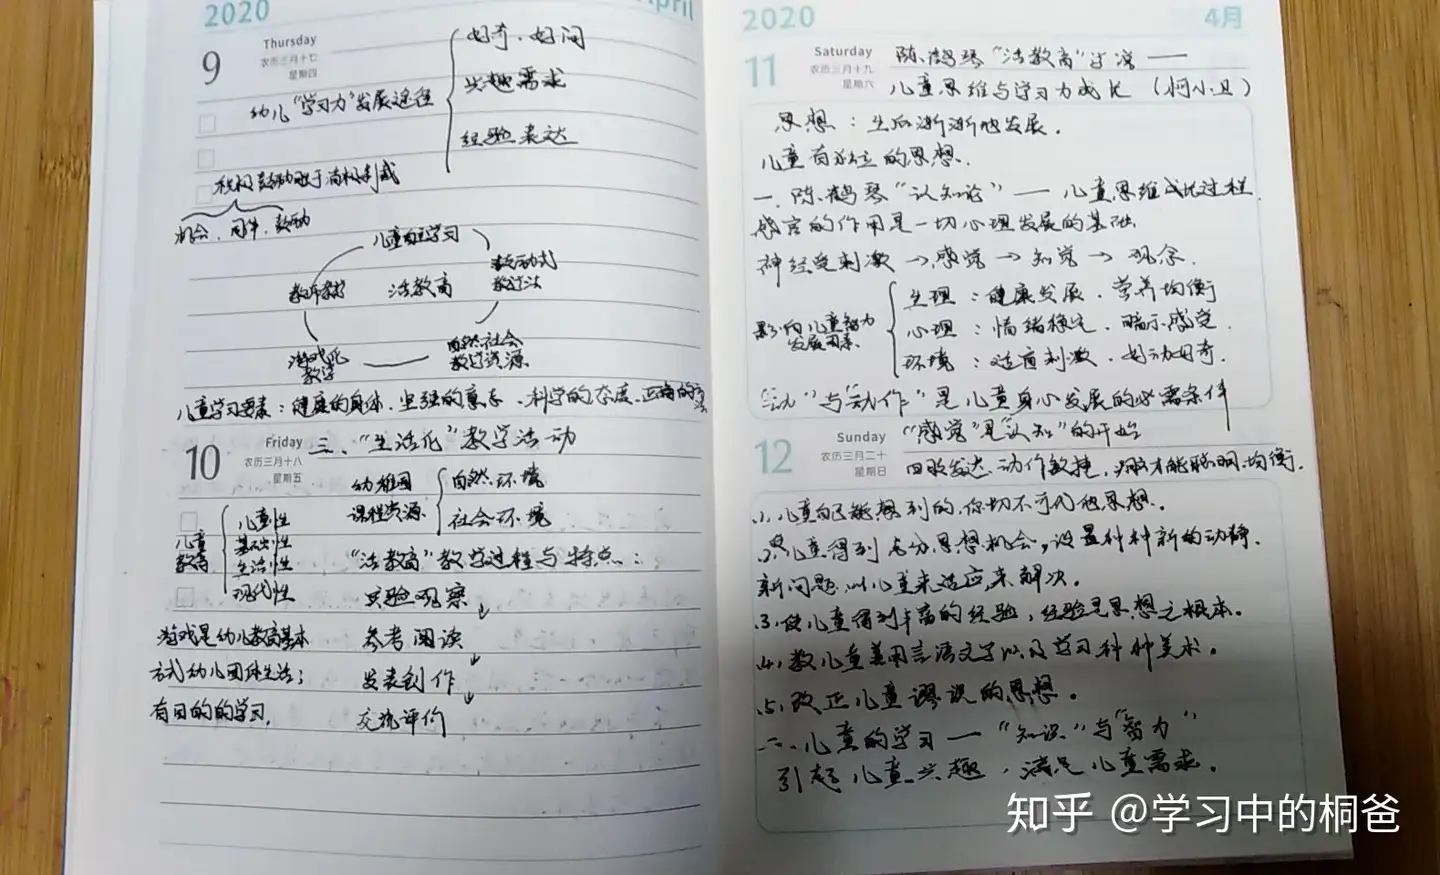 2020
April
9
Thursday
农历三月十七
星期四
好奇、好问
兴趣需求
幼儿“学习力”发展途径
经验表达
积极鼓励胜于消极制裁
机会、同伴、鼓励
儿童自主学习
教师教学
活教育
教学法
游戏化
教学
自然社会
教学资源
儿童学习要素：健康的身体、坚强的意志、科学的态度、正确的方法
10
Friday
农历三月十八
星期五
三、“生活化”教学活动
幼稚园
课程资源
自然环境
社会环境
儿童
教育
儿童性
基础性
生活性
现代性
“活教育”教学过程与特点：
实验观察
参考阅读
发表创作
交流评价
游戏是幼儿教育基本
方式 幼儿团体生活；
有目的的学习。
2020
4月
11
Saturday
农历三月十九
星期六
陈鹤琴“活教育”
儿童思维与学习力成长（柯小卫）
思想：生后渐渐地发展。
儿童有独立的思想。
一、陈鹤琴“认知论”——儿童思维成长过程
感官的作用是一切心理发展的基础
神经受刺激→感觉→知觉→观念.
影响儿童智力
发展因素
生理：健康发展、营养均衡
心理：情绪稳定、暗示感觉.
环境：适宜刺激、好动好奇.
“动”与“动作”是儿童身心发展的必需条件
12
Sunday
农历三月二十
星期日
“感觉”是“认知”的开始
四肢发达、动作敏捷，才能聪明、均衡.
1、儿童自己能想到的，你切不可代他思想.
2、儿童得到充分思想机会，设置种种新的动静.
新问题，以儿童来适应，来解决。
3、使儿童得到丰富的经验，经验是思想之根本。
4、教儿童善用言语文字以及学习种种美术。
5、改正儿童谬误的思想。
二、儿童的学习——“知识”与“智力”
引起儿童兴趣，满足儿童需求。
知乎 @学习中的桐爸